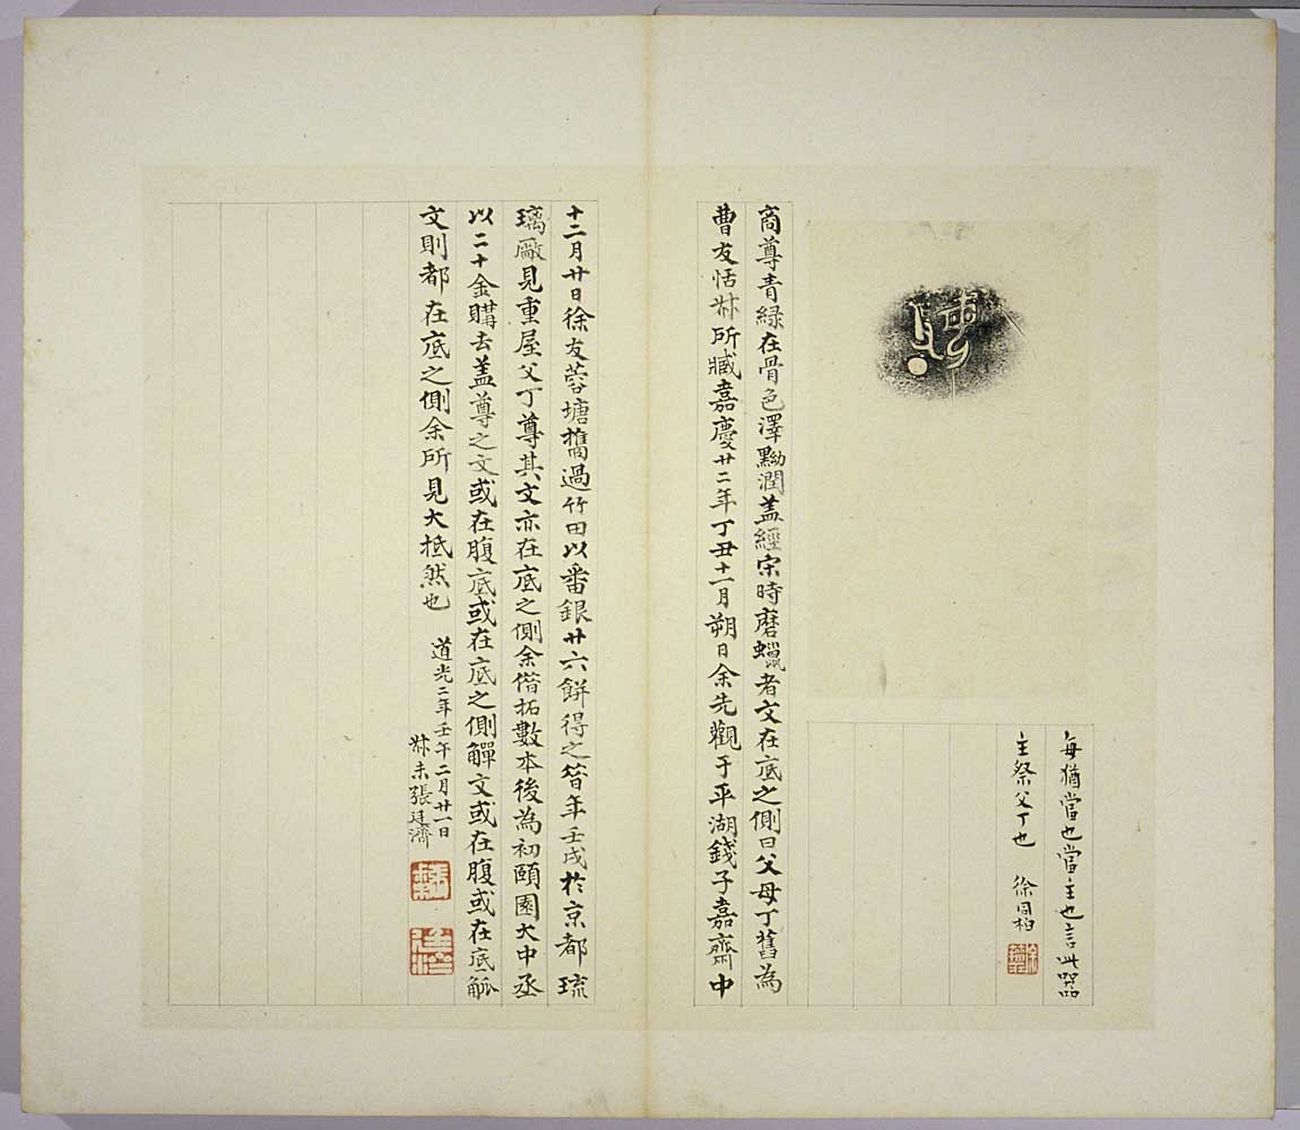 每猶當也當主也言此器
主祭父丁也 徐同柏
商尊青綠在骨色澤黝潤盖經宋時磨蠟者文在底之側曰父母丁舊為
曹友恬尗所臧嘉慶廿二年丁丑十一月朔日余先觀于平湖錢子嘉齋中
十二月廿日徐友蓉塘攜過竹田以番銀廿六餅得之昝年壬戌於京都琉
璃廠見重屋父丁尊其文亦在底之側余偕拓數本後為初頤園大中丞
以二十金購去盖尊之文或在腹底或在底之側觶文或在腹或在底觚
文則都在底之側余所見大抵然也
道光二年壬午二月廿一日
尗未張廷濟